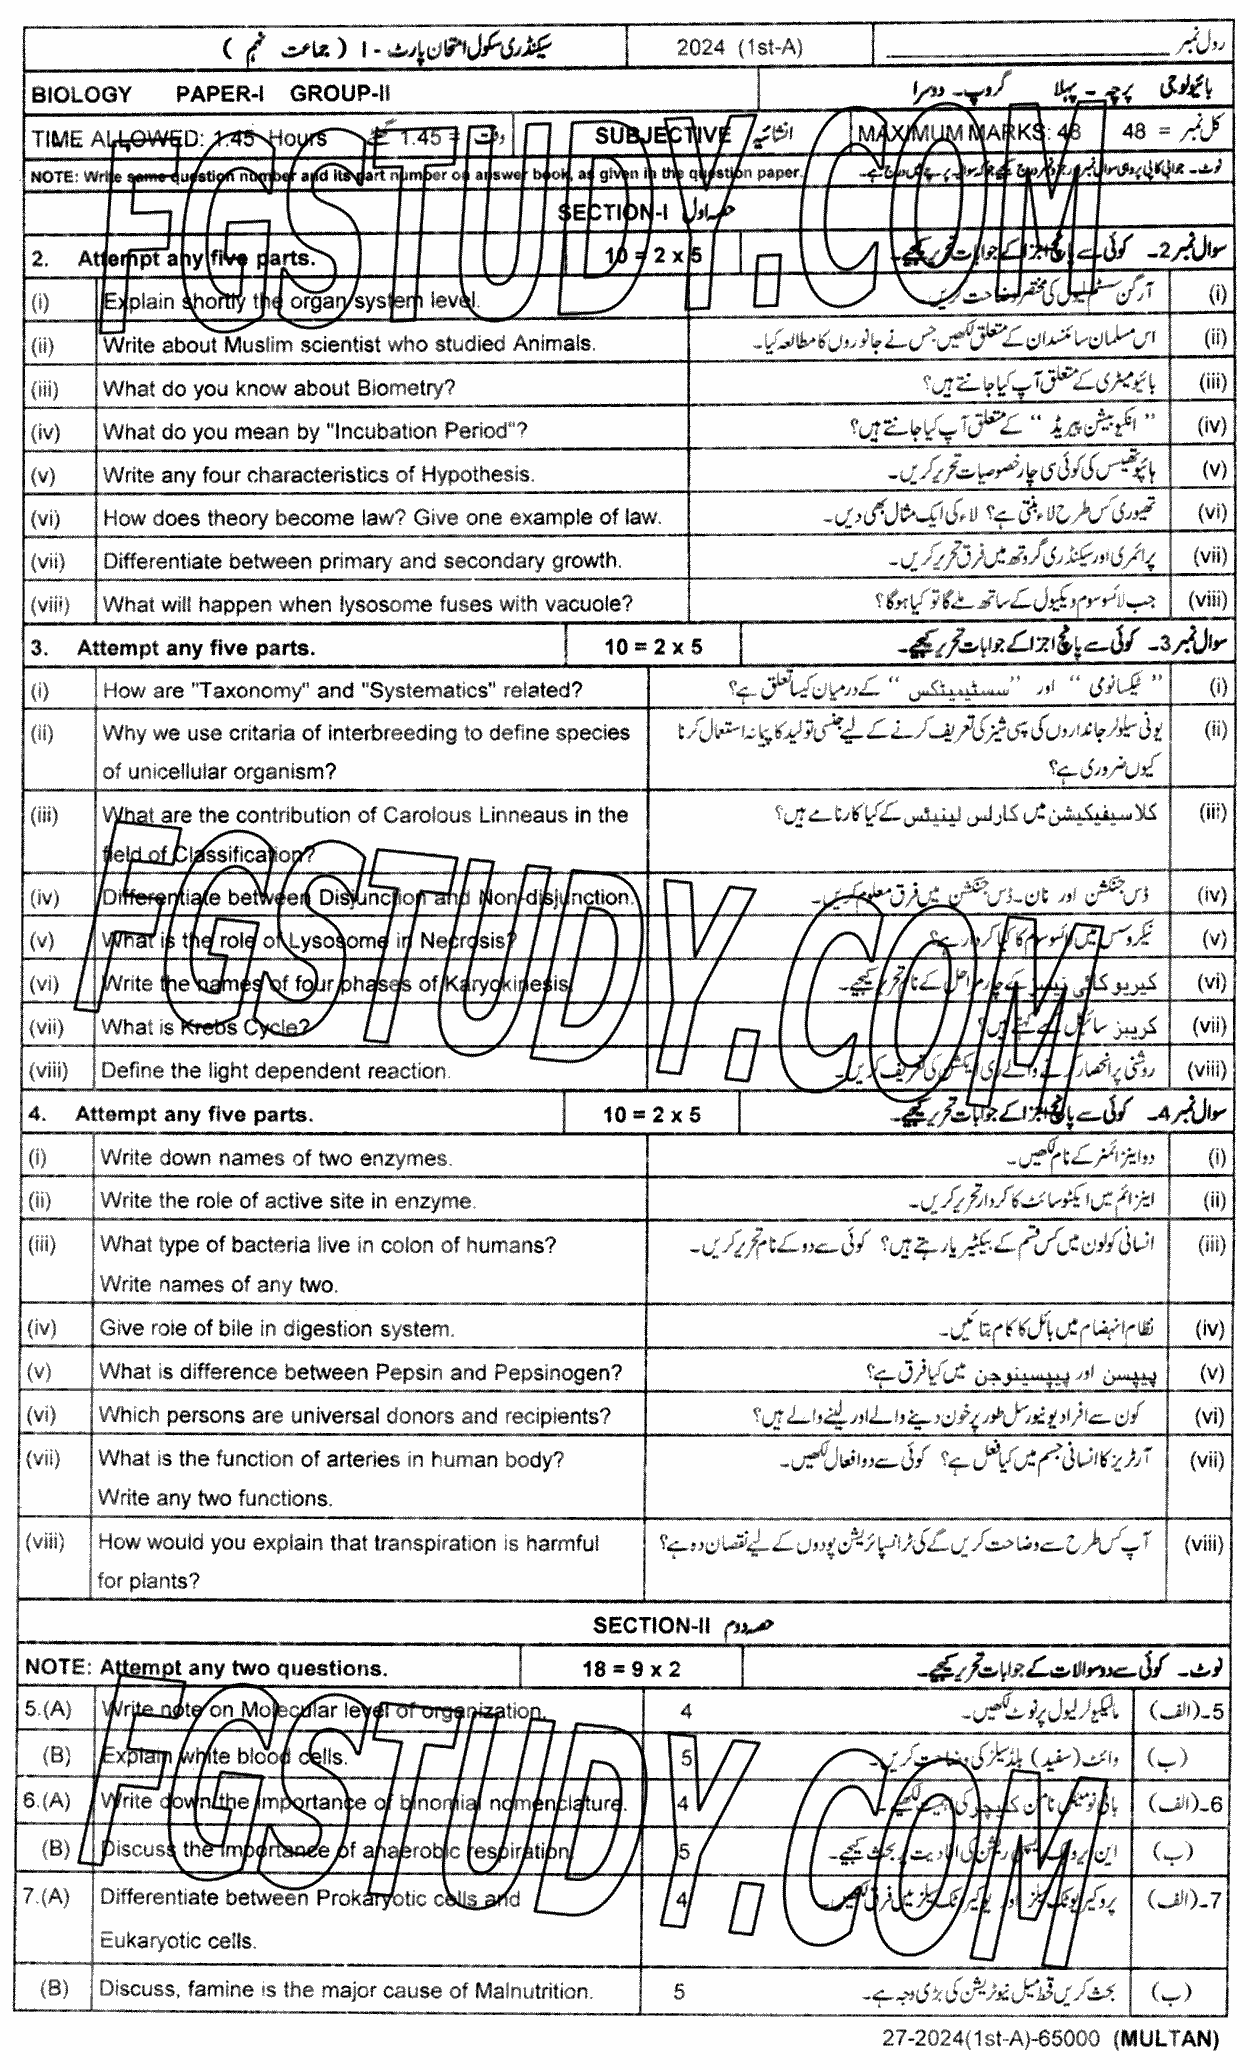 سیکنڈری سکول امتحان پارٹ - I ( جماعت نہم ) 2024 (1st-A) رول نمبر
BIOLOGY PAPER-I GROUP-II بائیولوجی پرچہ - پہلا گروپ - دوسرا
TIME ALLOWED: 1.45 Hours وقت = 1.45 گھنٹے SUBJECTIVE انشائیہ MAXIMUM MARKS: 48 کل نمبر = 48
NOTE: Write same question number and its part number on answer book, as given in the question paper.
SECTION-I حصہ اول
2. Attempt any five parts. 10 = 2 x 5 سوال نمبر 2۔ کوئی سے پانچ اجزا کے جوابات تحریر کیجیے۔
(i) Explain shortly the organ system level. آرگن سسٹم لیول کی مختصر وضاحت کریں۔ (i)
(ii) Write about Muslim scientist who studied Animals. اس مسلمان سائنسدان کے متعلق لکھیں جس نے جانوروں کا مطالعہ کیا۔ (ii)
(iii) What do you know about Biometry? بائیومیٹری کے متعلق آپ کیا جانتے ہیں؟ (iii)
(iv) What do you mean by "Incubation Period"? "انکیوبیشن پیریڈ" کے متعلق آپ کیا جانتے ہیں؟ (iv)
(v) Write any four characteristics of Hypothesis. ہائپوتھیسس کی کوئی سی چار خصوصیات تحریر کریں۔ (v)
(vi) How does theory become law? Give one example of law. تھیوری کس طرح لاء بنتی ہے؟ لاء کی ایک مثال بھی دیں۔ (vi)
(vii) Differentiate between primary and secondary growth. پرائمری اور سیکنڈری گروتھ میں فرق تحریر کریں۔ (vii)
(viii) What will happen when lysosome fuses with vacuole? جب لائسوسوم ویکیول کے ساتھ ملے گا تو کیا ہوگا؟ (viii)
3. Attempt any five parts. 10 = 2 x 5 سوال نمبر 3۔ کوئی سے پانچ اجزا کے جوابات تحریر کیجیے۔
(i) How are "Taxonomy" and "Systematics" related? "ٹیکسانومی" اور "سسٹیمیٹکس" کے درمیان کیسا تعلق ہے؟ (i)
(ii) Why we use critaria of interbreeding to define species یونی سیلولر جانداروں کی سپی شیز کی تعریف کرنے کے لیے جنسی تولید کا پیمانہ استعمال کرنا (ii)
of unicellular organism? کیوں ضروری ہے؟
(iii) What are the contribution of Carolous Linneaus in the کلاسیفیکیشن میں کارلس لینیئس کے کیا کارنامے ہیں؟ (iii)
field of Classification?
(iv) Differentiate between Disjunction and Non-disjunction. ڈس جنکشن اور نان۔ڈس جنکشن میں فرق معلوم کریں۔ (iv)
(v) What is the role of Lysosome in Necrosis? نیکروسس میں لائسوسوم کا کیا کردار ہے؟ (v)
(vi) Write the names of four phases of Karyokinesis. کیریوکائی نیسز کے چار مراحل کے نام تحریر کیجیے۔ (vi)
(vii) What is Krebs Cycle? کریبز سائیکل کسے کہتے ہیں؟ (vii)
(viii) Define the light dependent reaction. روشنی پر انحصار کرنے والے ری ایکشن کی تعریف کریں۔ (viii)
4. Attempt any five parts. 10 = 2 x 5 سوال نمبر 4۔ کوئی سے پانچ اجزا کے جوابات تحریر کیجیے۔
(i) Write down names of two enzymes. دو اینزائمز کے نام لکھیں۔ (i)
(ii) Write the role of active site in enzyme. اینزائم میں ایکٹو سائٹ کا کردار تحریر کریں۔ (ii)
(iii) What type of bacteria live in colon of humans? انسانی کولون میں کس قسم کے بیکٹیریا رہتے ہیں؟ کوئی سے دو کے نام تحریر کریں۔ (iii)
Write names of any two.
(iv) Give role of bile in digestion system. نظام انہضام میں بائل کا کام بتائیں۔ (iv)
(v) What is difference between Pepsin and Pepsinogen? پیپسن اور پیپسینوجن میں کیا فرق ہے؟ (v)
(vi) Which persons are universal donors and recipients? کون سے افراد یونیورسل طور پر خون دینے والے اور لینے والے ہیں؟ (vi)
(vii) What is the function of arteries in human body? آرٹریز کا انسانی جسم میں کیا فعل ہے؟ کوئی سے دو افعال لکھیں۔ (vii)
Write any two functions.
(viii) How would you explain that transpiration is harmful آپ کس طرح سے وضاحت کریں گے کی ٹرانسپائریشن پودوں کے لیے نقصان دہ ہے؟ (viii)
for plants?
SECTION-II حصہ دوم
NOTE: Attempt any two questions. 18 = 9 x 2 نوٹ۔ کوئی سے دو سوالات کے جوابات تحریر کیجیے۔
5.(A) Write note on Molecular level of organization. 4 مالیکیولر لیول پر نوٹ لکھیں۔ 5۔(الف)
(B) Explain white blood cells. 5 وائٹ (سفید) بلڈ سیلز کی وضاحت کریں۔ (ب)
6.(A) Write down the importance of binomial nomenclature. 4 بائی نومیئل نامن کلیچر کی اہمیت لکھیے۔ 6۔(الف)
(B) Discuss the importance of anaerobic respiration. 5 این ایروبک ریسپی ریشن کی افادیت پر بحث کیجیے۔ (ب)
7.(A) Differentiate between Prokaryotic cells and 4 پروکیریوٹک سیلز اور یوکیریوٹک سیلز میں فرق لکھیں۔ 7۔(الف)
Eukaryotic cells.
(B) Discuss, famine is the major cause of Malnutrition. 5 بحث کریں قحط میل نیوٹریشن کی بڑی وجہ ہے۔ (ب)
27-2024(1st-A)-65000 (MULTAN)
FGSTUDY.COM
FGSTUDY.COM
FGSTUDY.COM